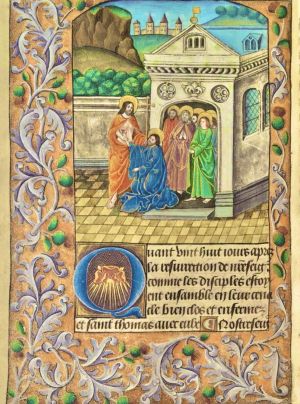 Quant vint huit iours apres
la resurrection de nreseig
comme les disciples estoy
ent ensamble en leur cena
cle
et enfermez
et saint thomas auec eulz Nostreseig